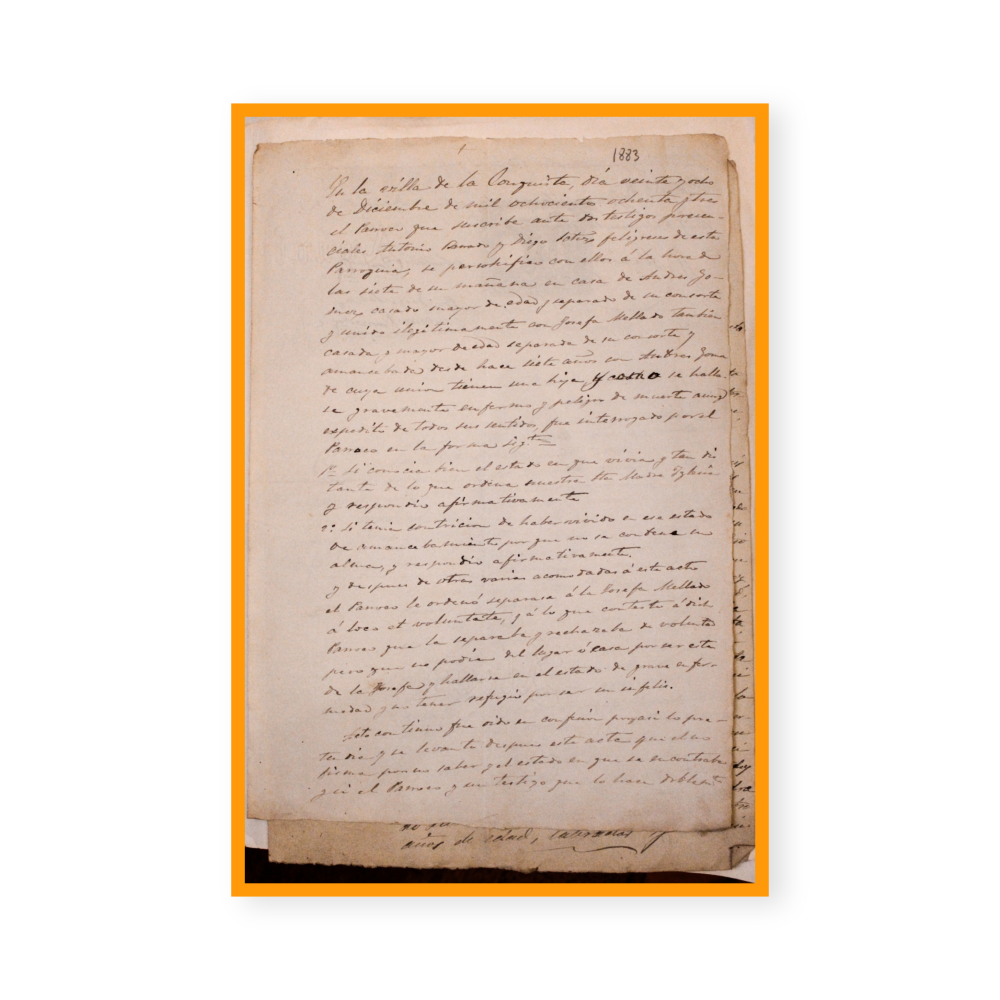 1883
En la villa de la Conquista, día veinte y ocho
de Diciembre de mil ochocientos ochenta y tres
el Parroco que suscribe ante dos testigos presen-
ciales Antonio y Diego feligreses de esta
Parroquia, se personifico con ellos á la hora de
las siete de su mañana en casa de Andres Go-
mez casado mayor de edad y separado de su consorte
y unido ilegitimamente con Josefa Mellado tambien
casada y mayor de edad separada de su consorte y
amancebada desde hace siete años con Andres Gomez
de cuya union tienen una hija y como se halla-
se gravemente enfermo y peligro de muerte aunq
expedito de todos sus sentidos, fue interrogado por el
Parroco en la forma sigte
1º Si conocia bien el estado en que vivia y tan dis
tante de lo que ordena nuestra Sta Madre Yglecia
y respondio afirmativamente
2º Si tenia contricion de haber vivido en ese estado
de amancebamiento porque no se condene su
alma, y respondio afirmativamente.
y despues de otras varias acomodadas á este acto
el Parroco le ordenó separase á la Josefa Mellado
á loco et voluntate, y á lo que contesto á dicho
Parroco que la separaba y rechazaba de voluntad
pero que no podia del lugar ó casa por ser esta
de la Josefa y hallarse en el estado de grave enfer-
medad y no tener refugio por ser un infeliz.
fue oido en confesion lo pre-
tendia y se levanta despues este acta que el no
firma por no saber y el estado en que se encontraba
y si el Parroco y un testigo que lo hace
años de edad,